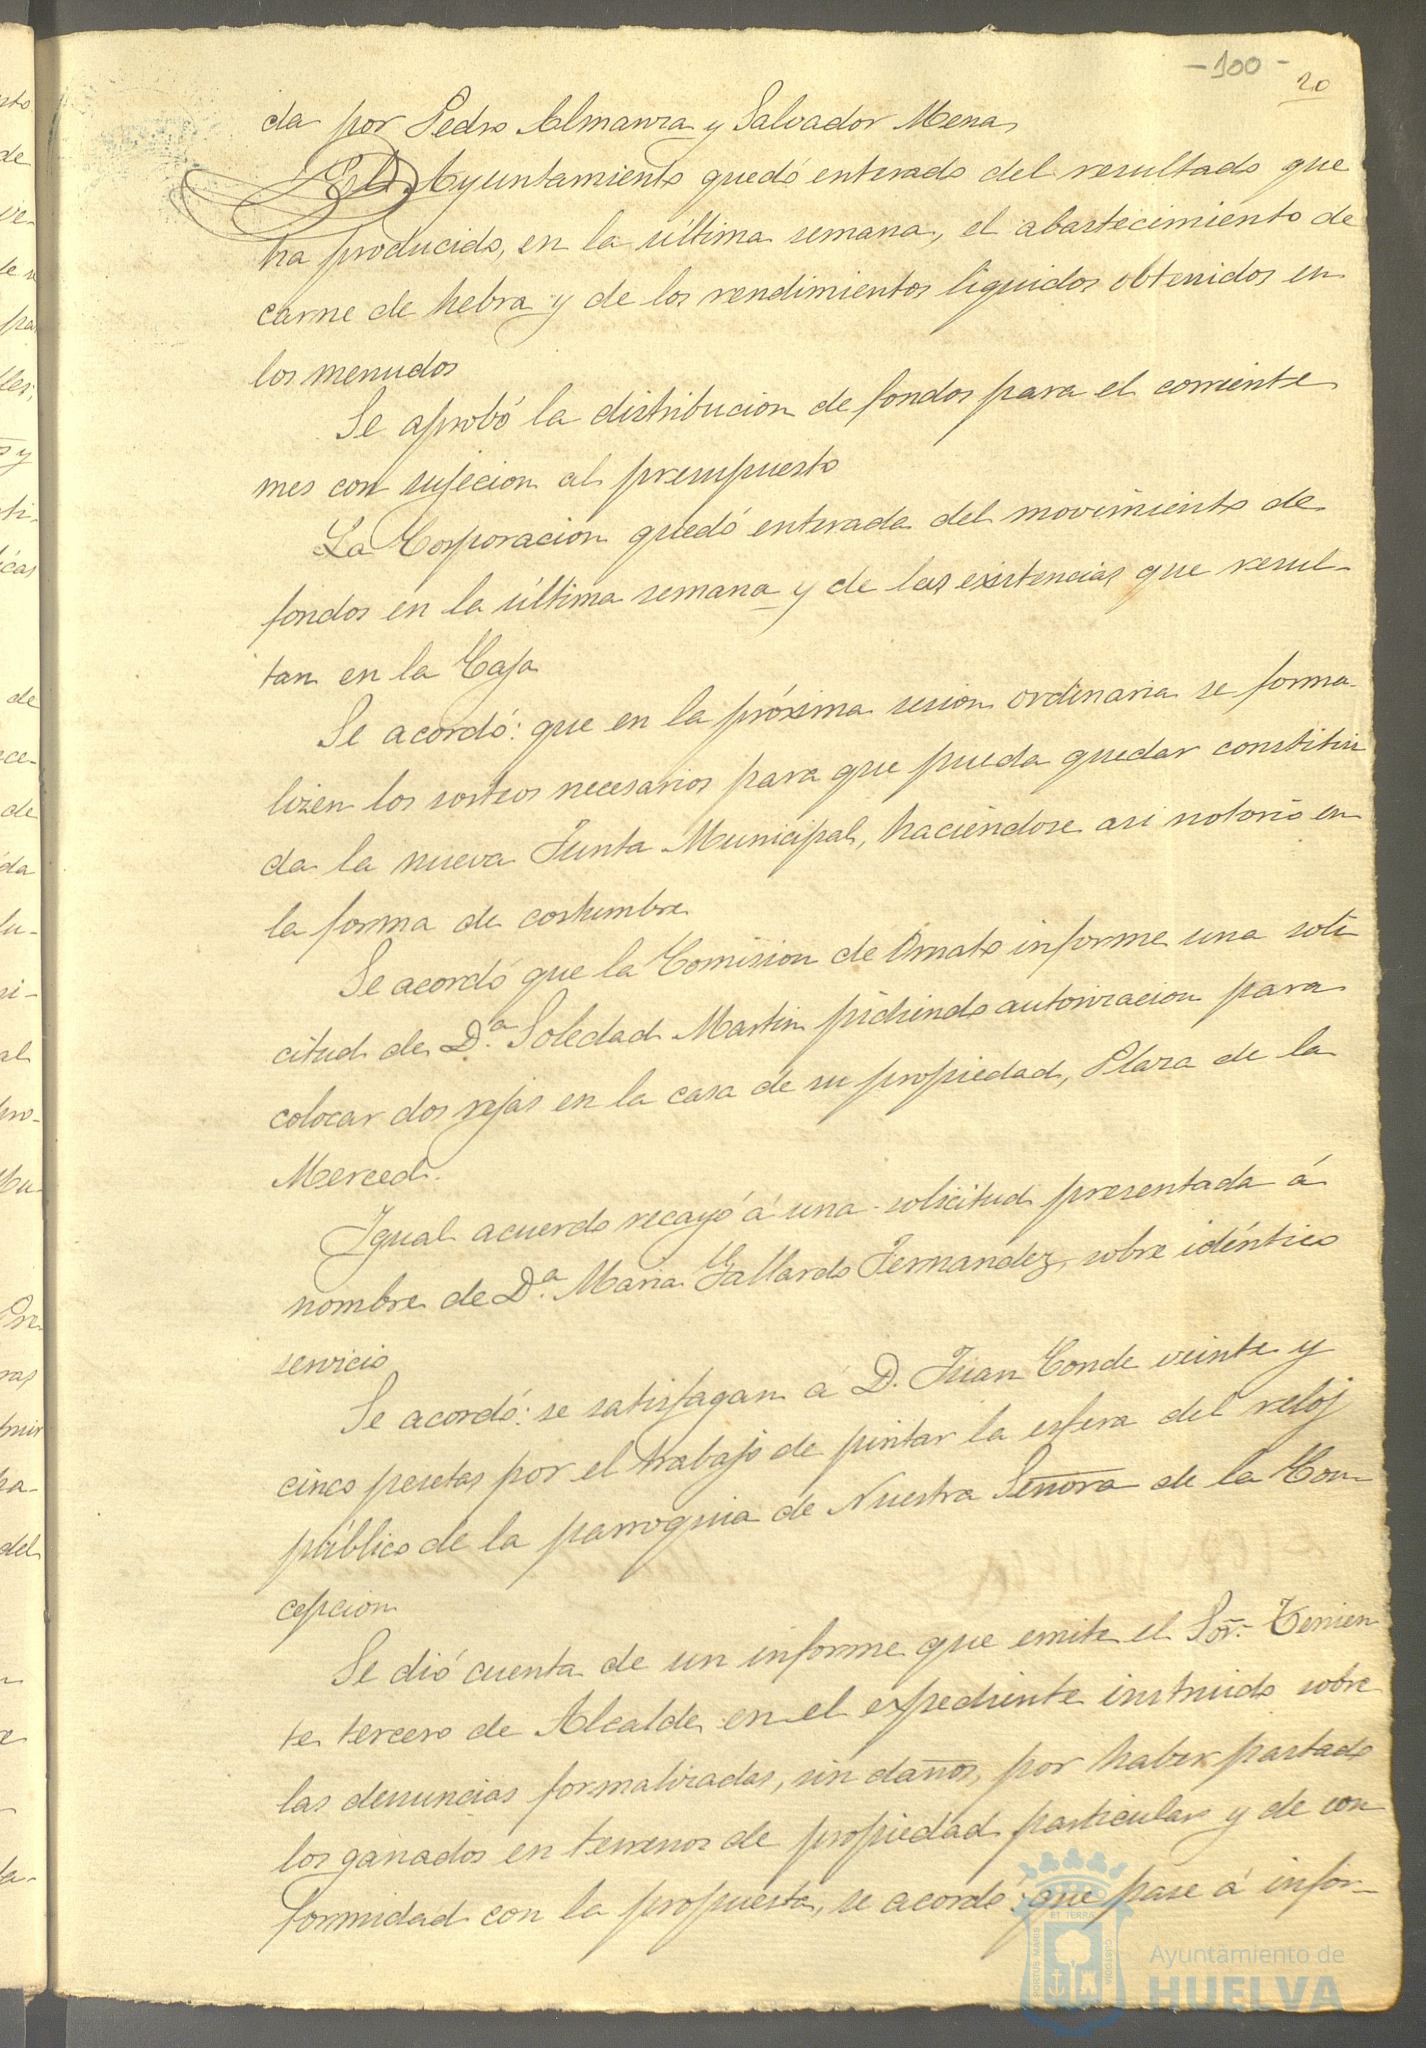 -100-
20
da por Pedro Almanza y Salvador Mena
El Ayuntamiento quedó enterado del resultado que
ha producido, en la última semana, el abastecimiento de
carne de hebra y de los rendimientos liquidos obtenidos en
los menudos
Se aprobó la distribucion de fondos para el corriente
mes con sujecion al presupuesto
La Corporacion quedó enterada del movimiento de
fondos en la última semana y de las existencias que resul-
tan en la Caja
Se acordó: que en la próxima sesion ordinaria se forma-
lizen los sorteos necesarios para que pueda quedar constitui
da la nueva Junta Municipal, haciéndose asi notorio en
la forma de costumbre
Se acordó que la Comision de Ornato informe una soli
citud de D.ª Soledad Martin pidiendo autorizacion para
colocar dos rejas en la casa de su propiedad, Plaza de la
Merced.
Igual acuerdo recayó á una solicitud presentada á
nombre de D.ª Maria Gallardo Fernandez, sobre idéntico
servicio
Se acordó: se satisfagan á D. Juan Conde veinte y
cinco pesetas por el trabajo de pintar la esfera del reloj
público de la parroquia de Nuestra Señora de la Con-
cepcion
Se dió cuenta de un informe que emite el Sor. Tenien
te tercero de Alcalde en el expediente instruido sobre
las denuncias formalizadas, sin daños, por haber pastado
los ganados en terrenos de propiedad particular y de con
formidad con la propuesta, se acordó: que pase á infor-
PORTUS MARIS
ET TERRA
CUSTODIA
Ayuntamiento de
HUELVA